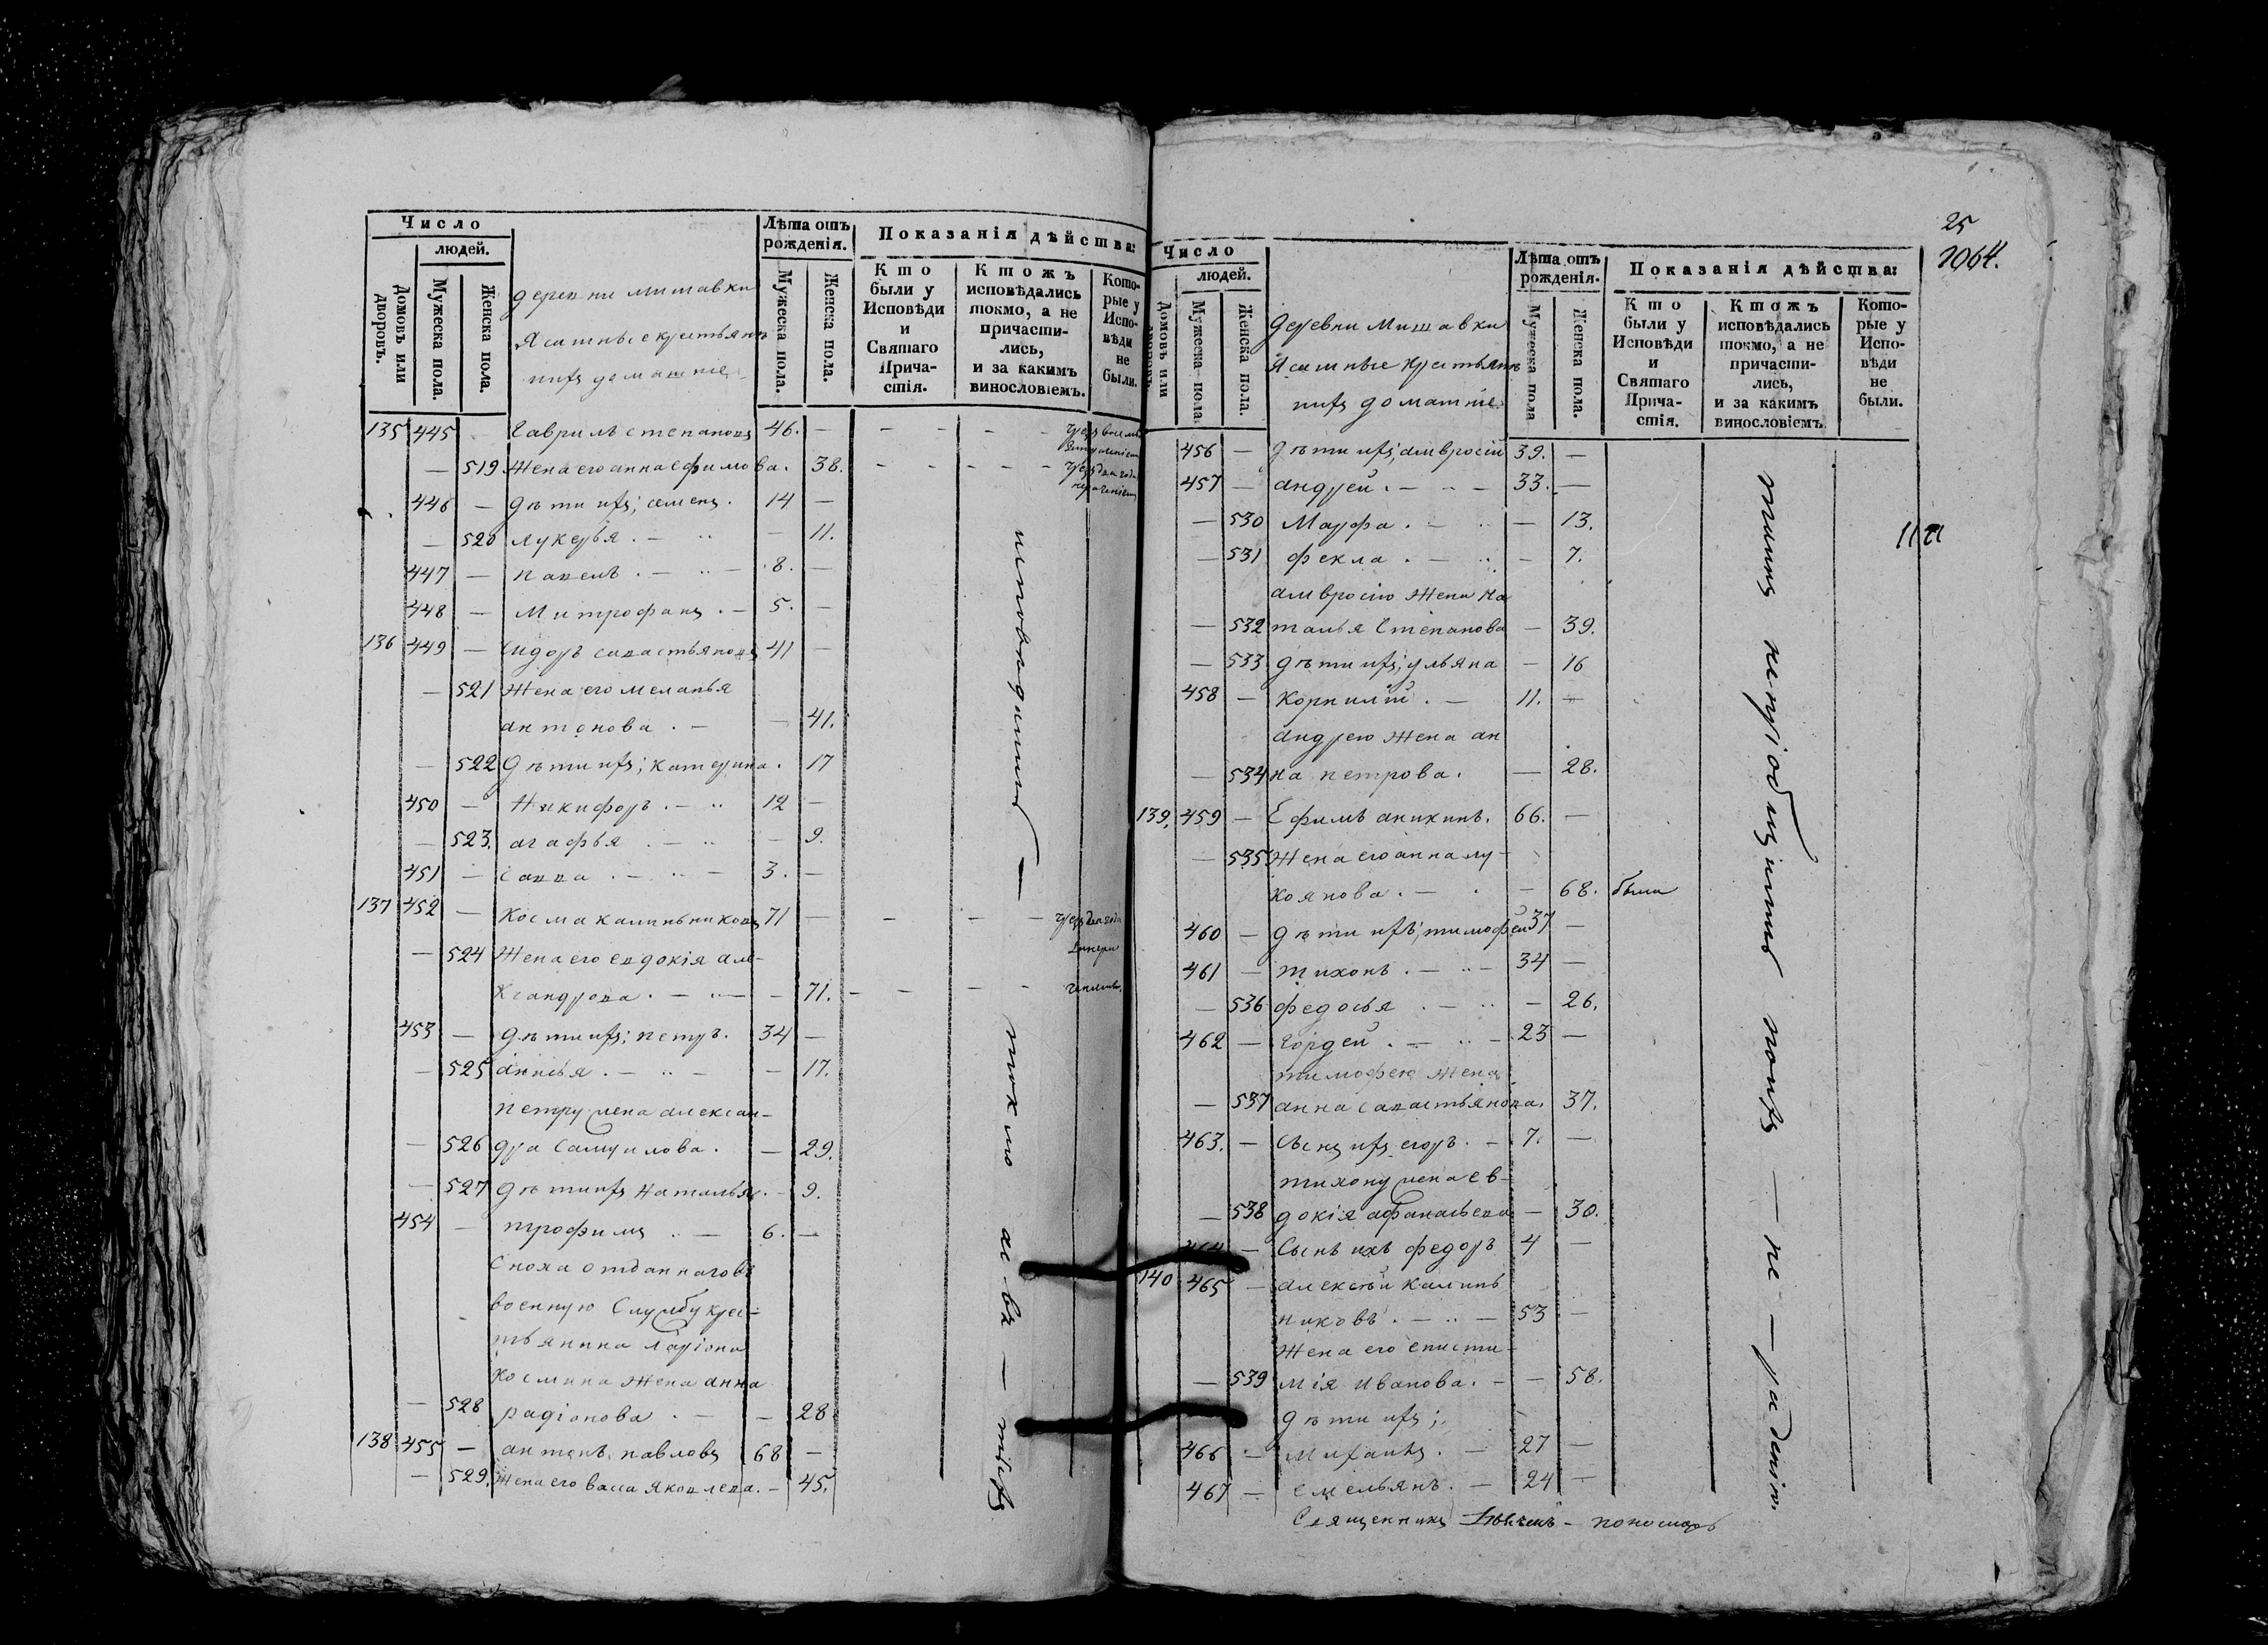 Число
людей.
Домовъ или дворовъ.
Мужеска пола.
Женска пола.
деревни мишавки
Ясашные крестьяне
ихъ домашніе
Лѣта отъ рожденія.
Мужеска пола.
Женска пола.
Показанія дѣйства:
Кто были у Исповѣди и Святаго Причастія.
Ктожъ исповѣдались токмо, а не причастились, и за какимъ винословіемъ.
Которые у Исповѣди не были.
135 445 – Гаврилъ степановъ 46. –
– 519 Жена его анна ефимова. 38.
446 – дѣти ихъ; семенъ. 14 –
– 520 лукерья. – 11.
447 – павелъ. – 8. –
448 – Митрофанъ. – 5. –
136 449 – Сидоръ савастьяновъ 41 –
– 521 Жена его меланья
антонова. – – 41.
– 522 дѣти ихъ; катерина. 17
450 – Никифоръ. – 12 –
– 523. агафья – – 9.
451 – Савва. – 3. –
137 452 – Косма калинниковъ 71 –
– 524 Жена его евдокія але-
ксандрова. – – 71.
453 – дѣти ихъ; петръ. 34 –
– 525 анисья. – – 17.
петру жена алексан-
– 526 дра Самуилова. – 29.
– 527 дѣти ихъ наталья. – 9.
454 – трофимъ – 6. –
Сноха отданнаго въ
военную Службу крес-
тьянина Ларіона
Космина жена анна
– 528 радіонова. – – 28
138 455 – антонъ павловъ 68 –
– 529. Жена его васса яковлева. – 45.
токмо
25
1064.
Число
людей.
Домовъ или дворовъ.
Мужеска пола.
Женска пола.
деревни Мишавки
Ясашные крестьяне
ихъ домашніе
Лѣта отъ рожденія.
Мужеска пола
Женска пола.
Показанія дѣйства:
Кто были у Исповѣди и Святаго Причастія.
Ктожъ исповѣдались токмо, а не причастились, и за какимъ винословіемъ.
Которые у Исповѣди не были.
456 – дѣти ихъ; амвросій 39. –
457 – андрей. – – 33. –
– 530 Марфа. – – 13.
– 531 фекла. – – 7.
амвросію жена на
– 532 талья Степанова – 39.
– 533 дѣти ихъ; ульяна – 16
458 – Корнилій. – 11. –
андрею жена ан
– 534 на петрова. – 28.
139. 459 – Ефимъ аникинъ. 66. –
– 535 Жена его анна лу-
коянова. – – 68. была
460 – дѣти ихъ; тимофей 37 –
461 – тихонъ. – 34 –
– 536 федосья – – 26.
462 – Гордей. – 23 –
тимофею жена
– 537 анна савастьянова. 37.
463. – Сынъ ихъ егоръ. – 7. –
тихону жена ев-
– 538 докія афанасьева – 30.
464 – Сынъ ихъ федоръ 4 –
140 465 – алексѣй калин
никовъ. – 53 –
Жена его еписти-
– 539 мія Иванова. – – 58.
дѣти ихъ;
466 – михаилъ. – 27 –
467 – емельянъ. – 24 –
Священникъ